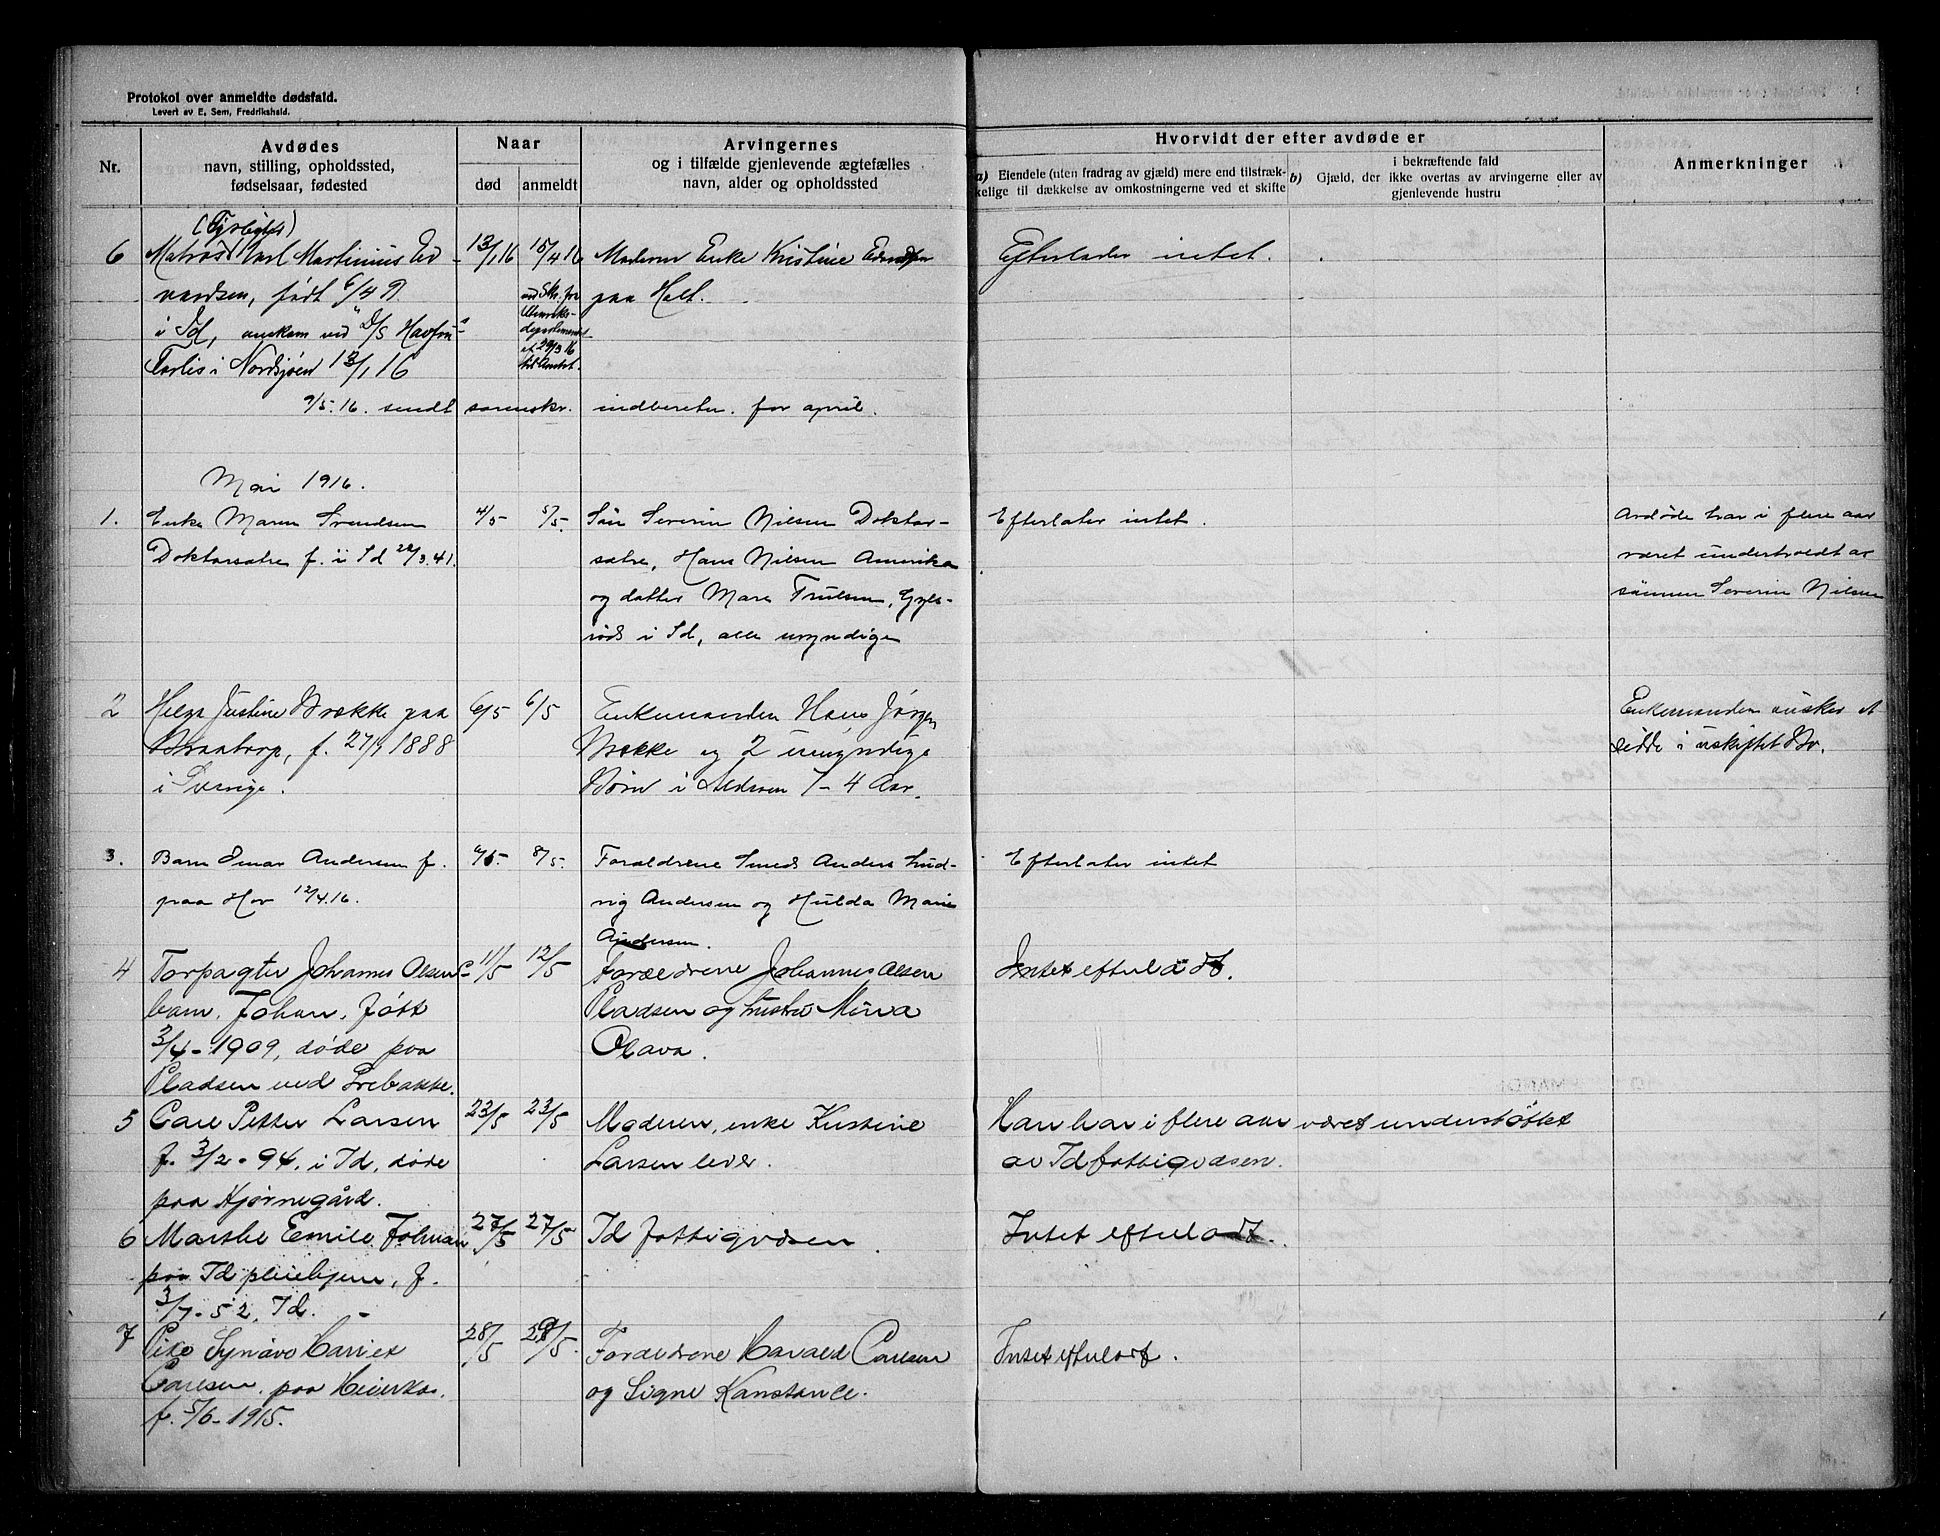 Protokol over anmeldte dødsfald.
Levert av E. Sem, Fredrikshald.
Nr.
Avdødes
navn, stilling, opholdssted,
fødselsaar, fødested
Naar
død
anmeldt
Arvingernes
og i tilfælde gjenlevende ægtefælles
navn, alder og opholdssted
Hvorvidt der efter avdøde er
a) Eiendele (uten fradrag av gjæld) mere end tilstræk-
kelige til dækkelse av omkostningerne ved et skifte
b) Gjæld, der
i bekræftende fald
ikke overtas av arvingerne eller av
gjenlevende hustru
Anmerkninger
6
Matros Karl Martinius Ed
vardsen, født 6/4 97
i Id, omkom ved D/S Havfru
Forlis i Nordsjøen 13/1 16
13/1 16
15/4 16
ved Skr. fra
Utenriks-
departementet
til Amtet.
Moderen Enke Kristine Edvardsen
paa Holt.
Efterlader intet.
9/5.16. sendt samskr. indberetn. for april.
Mai 1916.
1.
Enke Maren Svendsen
Doktorsætre f. i Id 22/3.41.
4/5
5/5.
Søn Severin Nilsen Doktor-
sætre, Hans Nilsen Amerika
og datter Maren Trulsen, Gjels-
röd i Id, alle myndige
Efterlater intet.
Avdöde har i flere aar
været understøedt av
sönnen Severin Nilsen
2
Helga Justine Brække paa
Braatorp, f. 27/9 1888
i Sverige.
6/5
6/5
Enkemanden Hans Jørgen
Brække og 2 umyndige
Børn i Alderen 7-4 Aar.
Enkemanden ønsker at
sidde i uskiftet Bo.
3.
Barn Einar Andersen f.
paa Hov 12/4.16.
8/5.
Forældrene Smed Anders Lud-
vig Andersen og Hulda Marie
Andersen.
Efterlater intet
4
Torpagter Johannes Olsens
barn, Johan, født
3/4-1909, døde paa
Pladsen ved Prebakke.
11/5
12/5
Forældrene Johannes Olsen
Pladsen og hustru Mina
Olava.
Intet efterladt.
5
Carl Petter Larsen
f. 3/2-94, i Id, døde
paa Hjørnegård.
23/5
23/5
Moderen, enke Kristine
Larsen lever.
Han har i flere aar været understøttet
av Id fattigvæsen.
6
Marthe Emilie Johnsen
paa Id pleiehjem, f.
3/7-52, Id.
27/5
27/5
Id fattigvæsen
Intet efterladt.
7
Pike Synøve Hariet
Carlsen, paa Heierkas.
f. 5/6-1915.
28/5
29/5.
Forældrene Harald Carlsen
og Signe Konstance.
Intet efterladt.